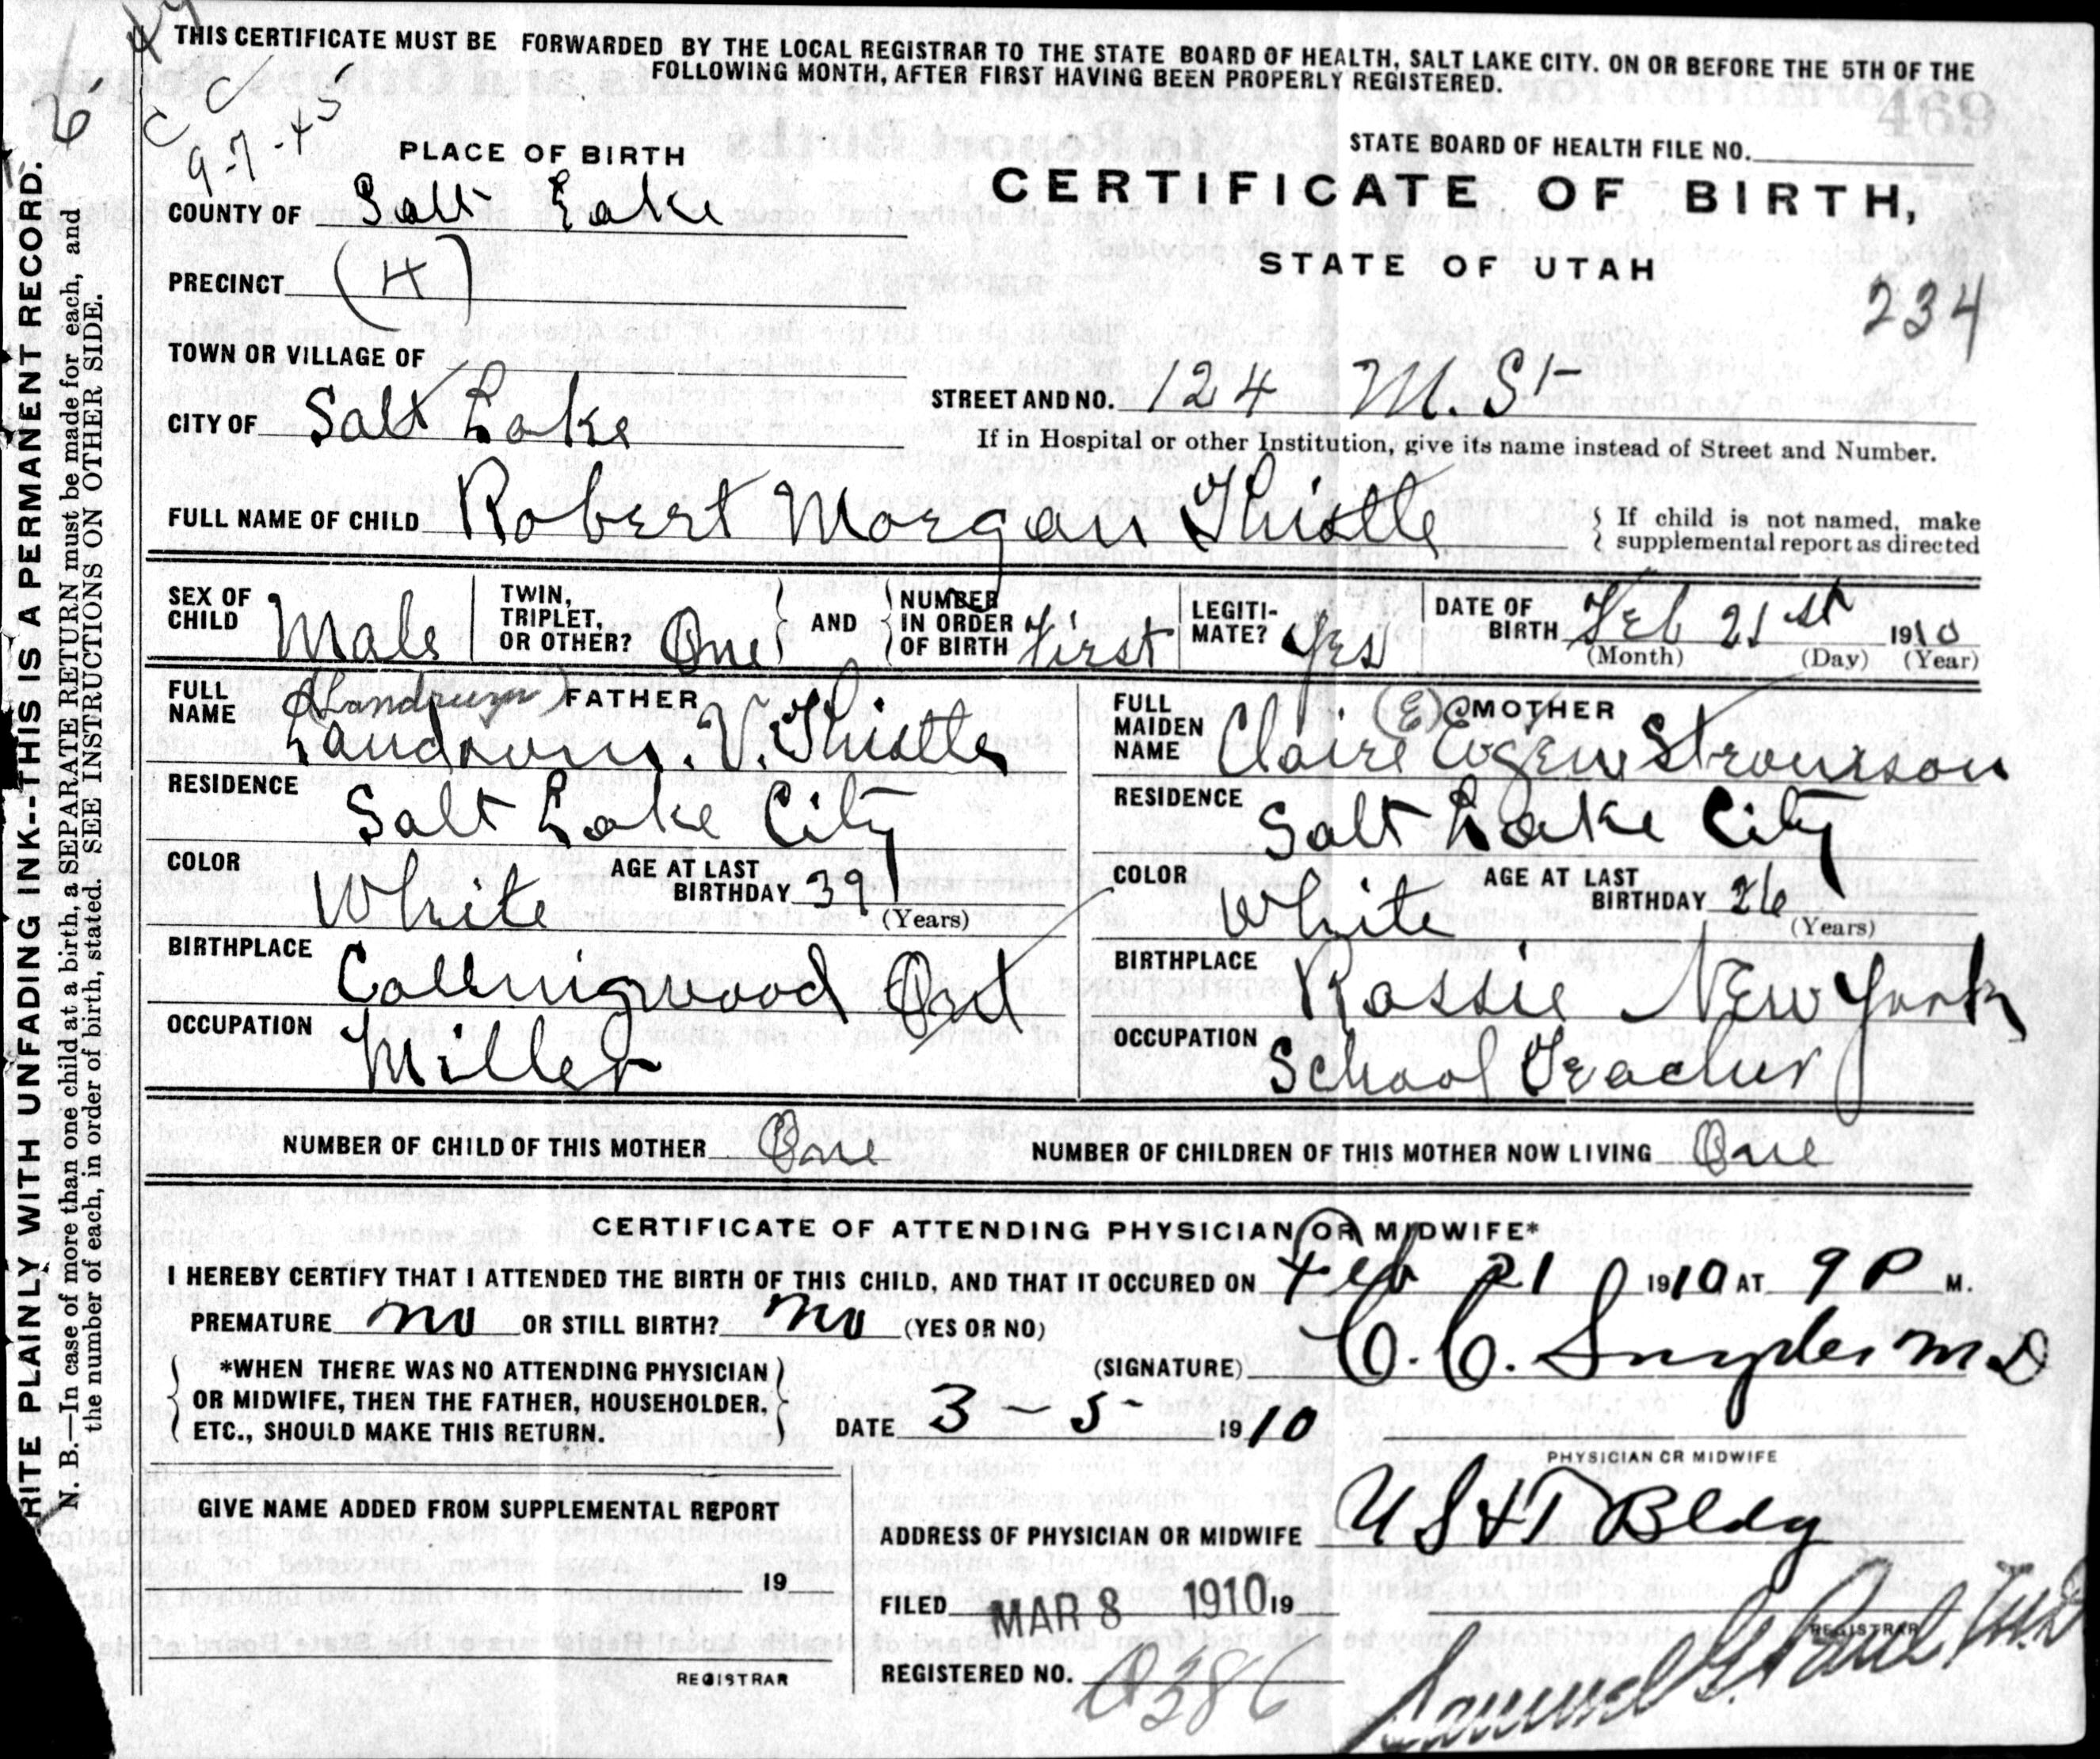 THIS CERTIFICATE MUST BE FORWARDED BY THE LOCAL REGISTRAR TO THE STATE BOARD OF HEALTH, SALT LAKE CITY. ON OR BEFORE THE 5TH OF THE
FOLLOWING MONTH, AFTER FIRST HAVING BEEN PROPERLY REGISTERED.
469
6
C C
9-7-45
PLACE OF BIRTH
STATE BOARD OF HEALTH FILE NO.
COUNTY OF Salt Lake
CERTIFICATE OF BIRTH,
STATE OF UTAH
PRECINCT (4)
234
TOWN OR VILLAGE OF
CITY OF Salt Lake
STREET AND NO. 124 M. St
If in Hospital or other Institution, give its name instead of Street and Number.
FULL NAME OF CHILD Robert Morgan Thistle
If child is not named, make
supplemental report as directed
SEX OF CHILD Male
TWIN, TRIPLET, OR OTHER? One
AND
NUMBER IN ORDER OF BIRTH First
LEGITI-MATE? Yes
DATE OF BIRTH Feb 21st 1910
(Month) (Day) (Year)
FULL NAME FATHER
(Landrum)
Landrum. V. Thistle
RESIDENCE Salt Lake City
COLOR White
AGE AT LAST BIRTHDAY 39
(Years)
BIRTHPLACE Collingwood Ont
OCCUPATION Miller
FULL MAIDEN NAME MOTHER
(E)
Claire Eugene Strouison
RESIDENCE Salt Lake City
COLOR White
AGE AT LAST BIRTHDAY 26
(Years)
BIRTHPLACE Rossie New York
OCCUPATION School Teacher
NUMBER OF CHILD OF THIS MOTHER One
NUMBER OF CHILDREN OF THIS MOTHER NOW LIVING One
CERTIFICATE OF ATTENDING PHYSICIAN OR MIDWIFE*
I HEREBY CERTIFY THAT I ATTENDED THE BIRTH OF THIS CHILD, AND THAT IT OCCURED ON Feb 21 1910 AT 9 P M.
PREMATURE no OR STILL BIRTH? no (YES OR NO)
*WHEN THERE WAS NO ATTENDING PHYSICIAN
OR MIDWIFE, THEN THE FATHER, HOUSEHOLDER,
ETC., SHOULD MAKE THIS RETURN.
(SIGNATURE) C. C. Snyder M D
DATE 3-5- 1910
PHYSICIAN OR MIDWIFE
GIVE NAME ADDED FROM SUPPLEMENTAL REPORT
19
REGISTRAR
ADDRESS OF PHYSICIAN OR MIDWIFE U S & T Bldg
FILED MAR 8 1910 19
REGISTRAR
Samuel G. Paul M.D
REGISTERED NO. 0386
WRITE PLAINLY WITH UNFADING INK--THIS IS A PERMANENT RECORD.
N. B.—In case of more than one child at a birth, a SEPARATE RETURN must be made for each, and
the number of each, in order of birth, stated. SEE INSTRUCTIONS ON OTHER SIDE.